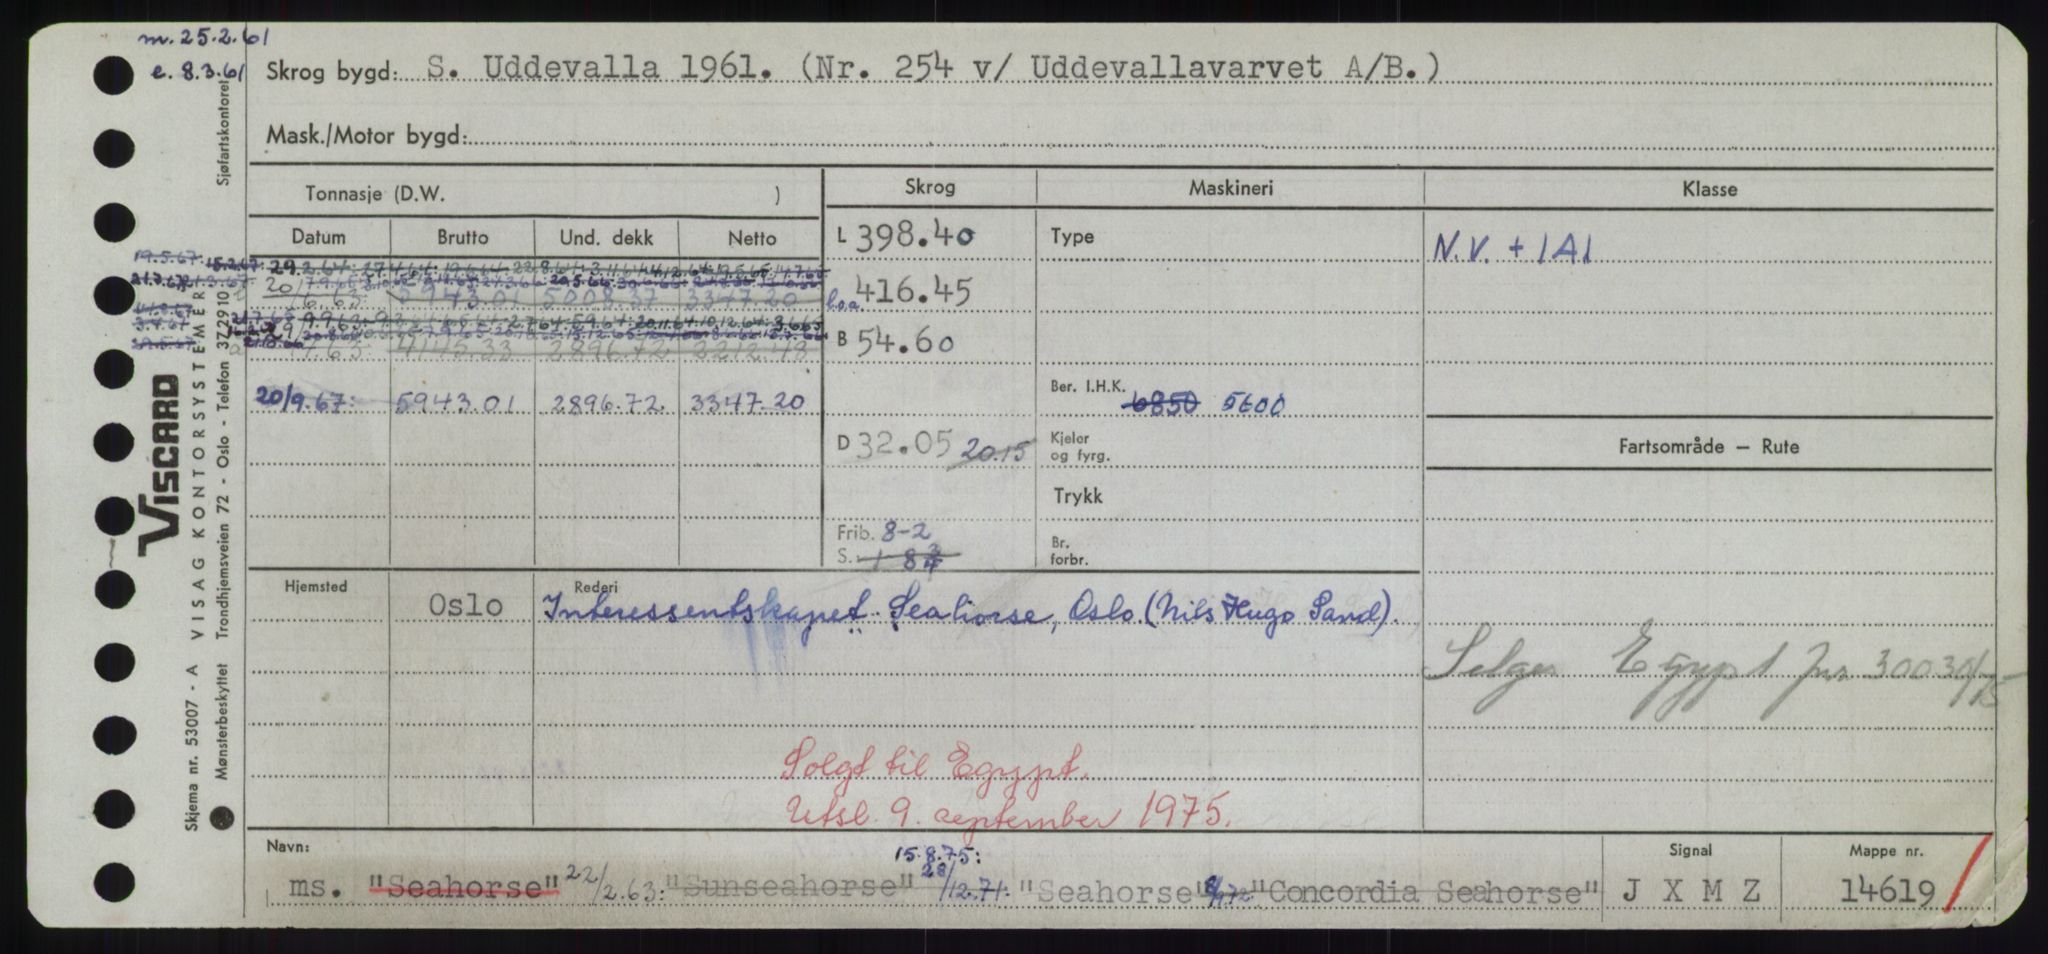 m. 25.2.61
e. 8.3.61
Skrog bygd: S. Uddevalla 1961. (Nr. 254 v/ Uddevallavarvet A/B.)
Mask./Motor bygd:
Tonnasje (D.W. )
Skrog Maskineri Klasse
Datum Brutto Und. dekk Netto
L 398.40 Type N.V. + 1A1
20/6.63 5943.01 5008.37 3347.20
l.o.a. 416.45
4145.33 2896.72 2212.48
B 54.60
Ber. I.H.K. 6850 5600
20/9.67: 5943.01 2896.72 3347.20
D 32.05 20.15
Kjeler og fyrg.
Fartsområde — Rute
Trykk
Frib. 8-2
S.
Br. forbr.
Hjemsted Oslo
Rederi Interessentskapet Seahorse, Oslo. (Nils Hugo Sand).
Egypt
Solgt til Egypt.
Utsl. 9. september 1975.
Navn: Signal Mappe nr.
15.8.75:
ms. "Seahorse" 22/2.63: "Sunseahorse" 28/12.71: "Seahorse" "Concordia Seahorse" J X M Z 14619
Skjema nr. 53007 - A VISAG KONTORSYSTEMER
Mønsterbeskyttet Trondhjemsveien 72 - Oslo - Telefon 372910 Sjøfartskontoret
VISCARD